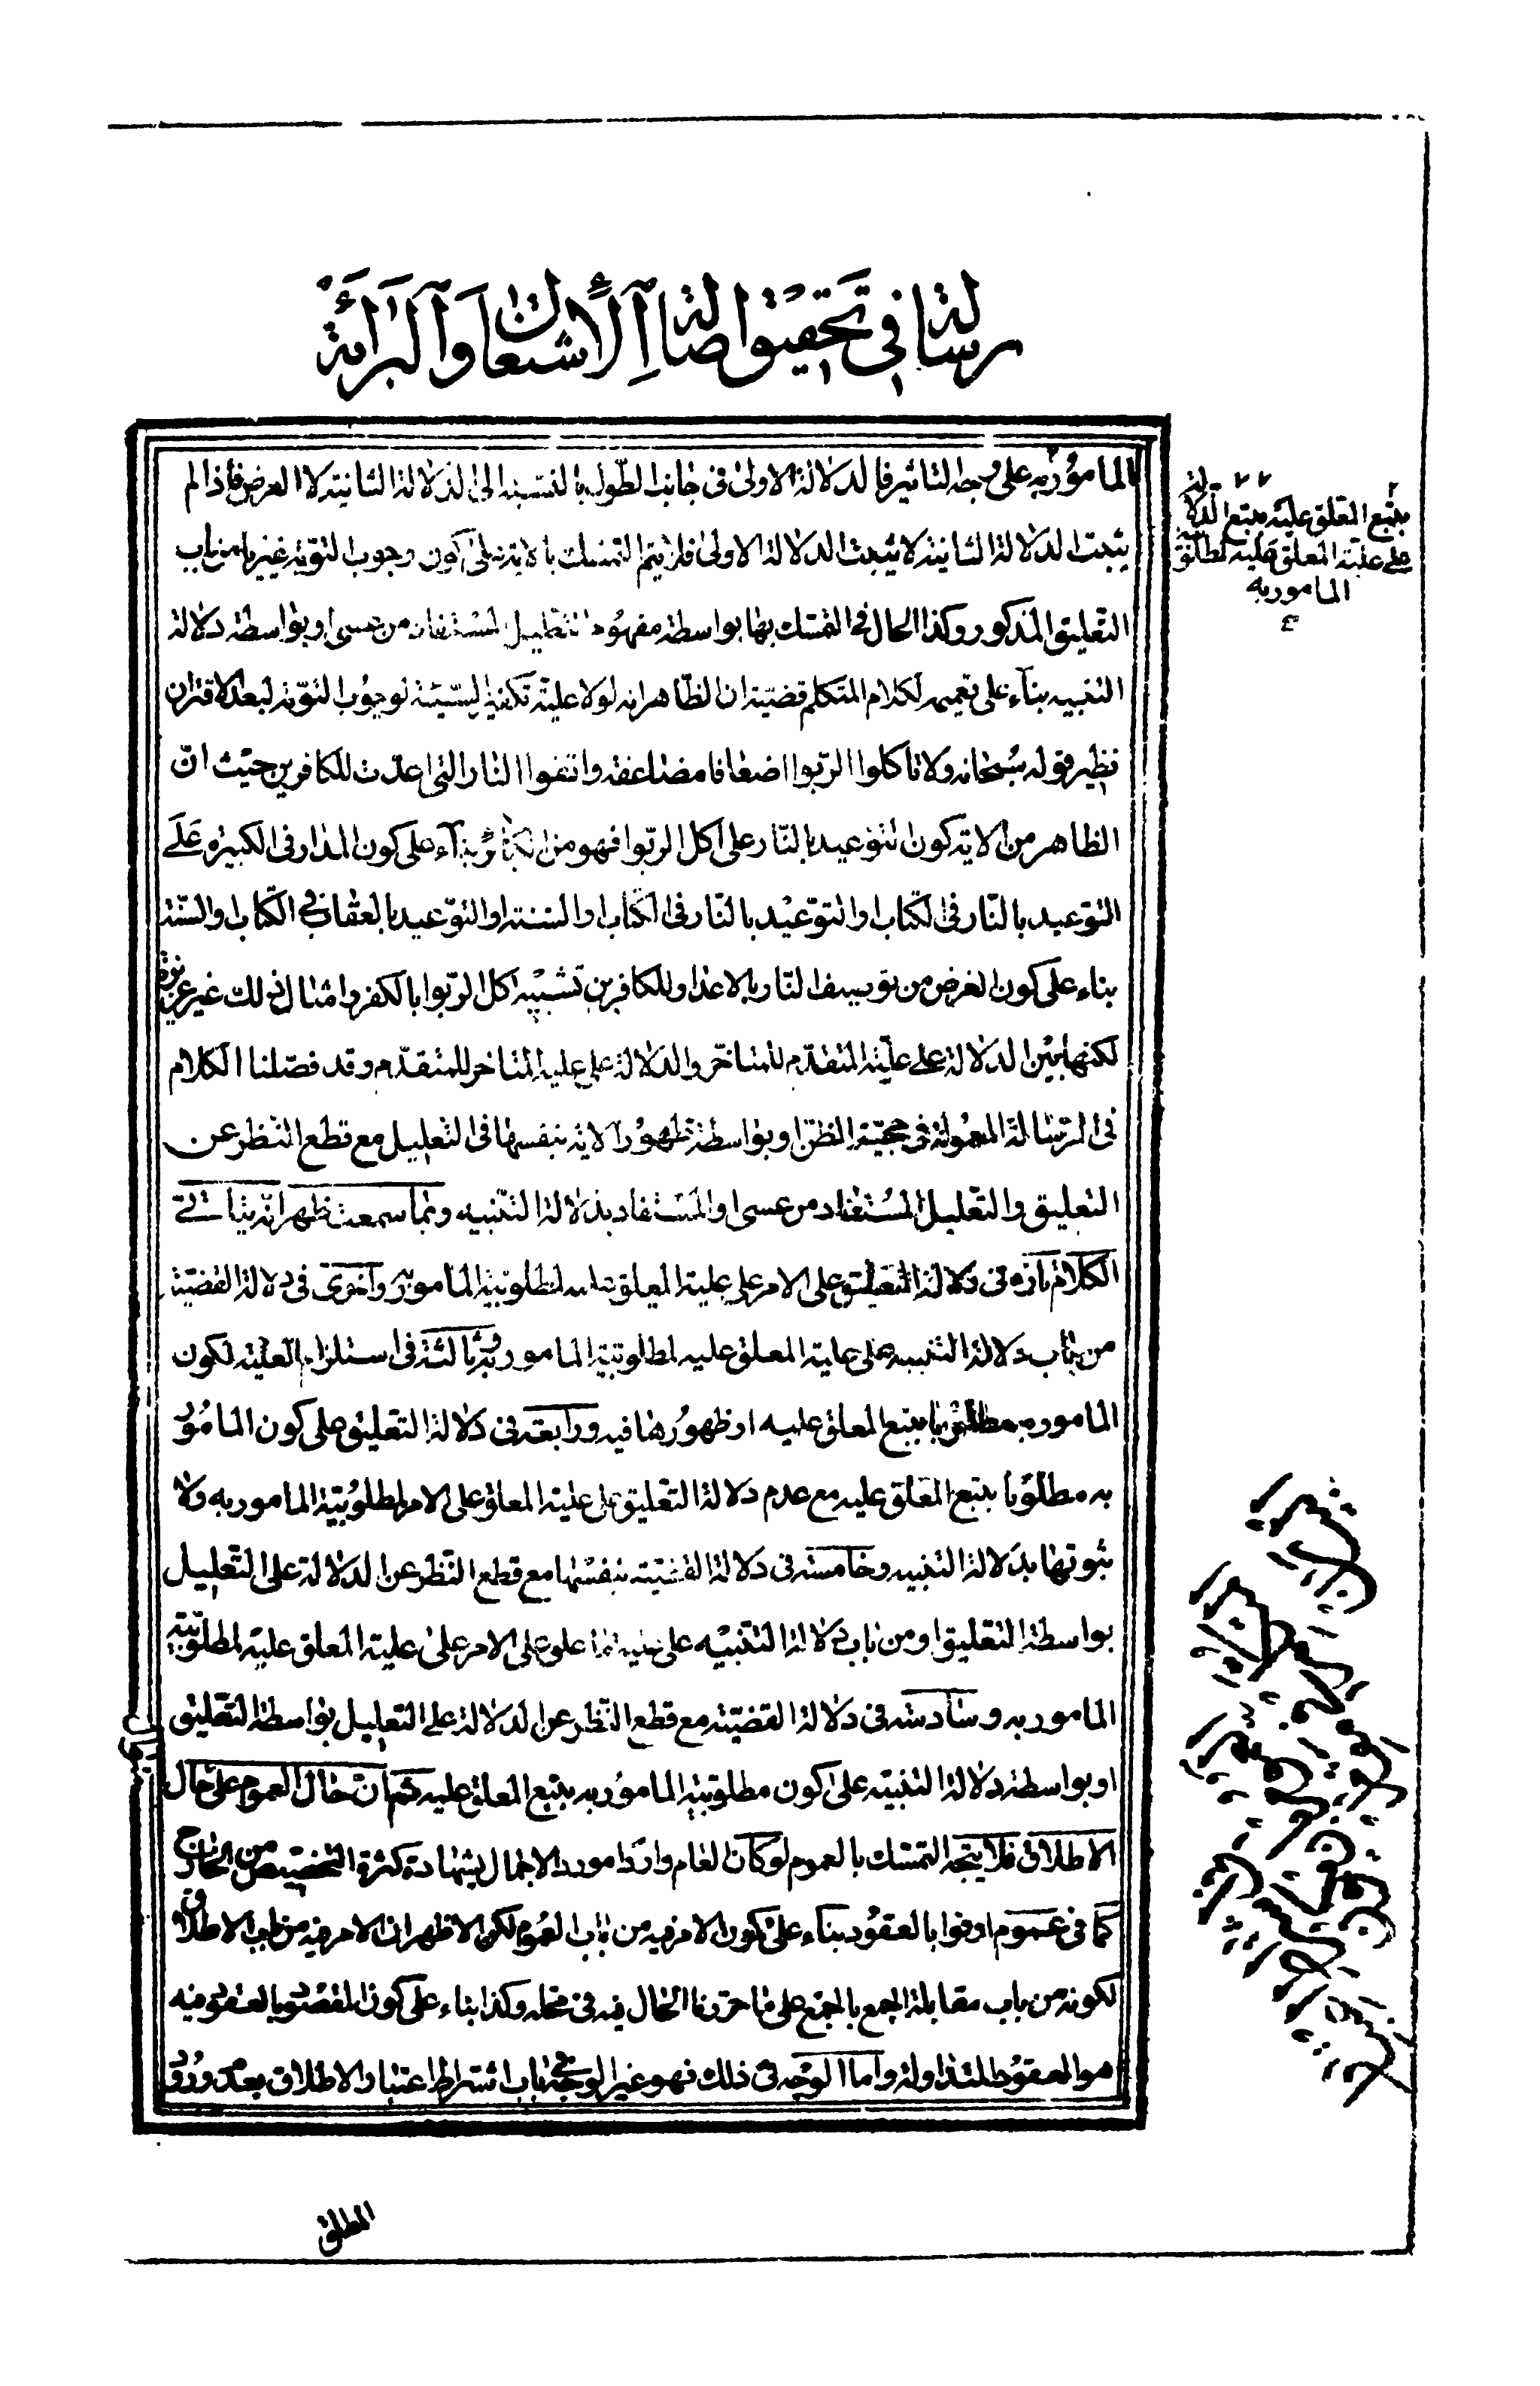 رسالة في تحقيق اصالة الاشتغال والبرائة
المامور به على وجه التاثير فالدلالة الاولى في جانب الطول بالنسبة الى الدلالة الثانية لا العرض فاذا لم
يثبت الدلالة الثانية لا يثبت الدلالة الاولى فلا يتم التمسك بالاية على كون وجوب التوبة غيريا من باب
التعليق المذكور وكذا الحال في التمسك بها بواسطة مفهوم التعليل المستفاد من عسى او بواسطة دلالة
التنبيه بناء على تعميمه لكلام المتكلم قضية ان الظاهر انه لولا علية تكفير السيئة لوجوب التوبة لبعد الاقتران
نظير قوله سبحانه ولا تاكلوا الربوا اضعافا مضاعفة واتقوا النار التي اعدت للكافرين حيث ان
الظاهر من الاية كون التوعيد بالنار على اكل الربوا فهو من الكبائر بناء على كون المدار في الكبيرة على
التوعيد بالنار في الكتاب او التوعيد بالنار في الكتاب او السنة او التوعيد بالعقاب في الكتاب والسنة
بناء على كون الغرض من توصيف النار بالاعداد للكافرين تشبيه اكل الربوا بالكفر وامثال ذلك غير عزيزة
لكنها بين الدلالة على علية المتقدم للمتاخر والدلالة على علية المتاخر للمتقدم وقد فصلنا الكلام
في الرسالة المعمولة في حجية الظن او بواسطة ظهور الاية بنفسها في التعليل مع قطع النظر عن
التعليق والتعليل المستفاد من عسى او المستفاد بدلالة التنبيه وبما سمعت ظهر انه يتاتى
الكلام تارة في دلالة التعليق على الامر على علية المعلق عليه لمطلوبية المامور به واخرى في دلالة القضية
من باب دلالة التنبيه على علية المعلق عليه لمطلوبية المامور به وثالثة في استلزام العلية لكون
المامور به مطلوبا بتبع المعلق عليه او ظهورها فيه ورابعة في دلالة التعليق على كون المامور
به مطلوبا بتبع المعلق عليه مع عدم دلالة التعليق على علية المعلق على الامر لمطلوبية المامور به ولا
ثبوتها بدلالة التنبيه وخامسة في دلالة القضية بنفسها مع قطع النظر عن الدلالة على التعليل
بواسطة التعليق او من باب دلالة التنبيه على علية ما علق على الامر على علية المعلق عليه لمطلوبية
المامور به وسادسة في دلالة القضية مع قطع النظر عن الدلالة على التعليل بواسطة التعليق
او بواسطة دلالة التنبيه على كون مطلوبية المامور به بتبع المعلق عليه ثم ان حال العموم على حال
الاطلاق فلا يتجه التمسك بالعموم لو كان العام واردا مورد الاجمال بشهادة كثرة التخصيص من الخارج
كما في عموم اوفوا بالعقود بناء على كون الامر فيه من باب العموم لكن الاظهر ان الامر فيه من باب الاطلاق
لكونه من باب مقابلة الجمع بالجمع على ما حررنا الحال فيه في محله وكذا بناء على كون المقصود بالعقود فيه
هو العقود المتداولة واما الوجه في ذلك فهو عين الوجه في باب اشتراط اعتبار الاطلاق بعدم ورود
المطلق
بتبع المعلق عليه بتبع الدلالة
على علية المعلق عليه لمطلوبية
المامور به